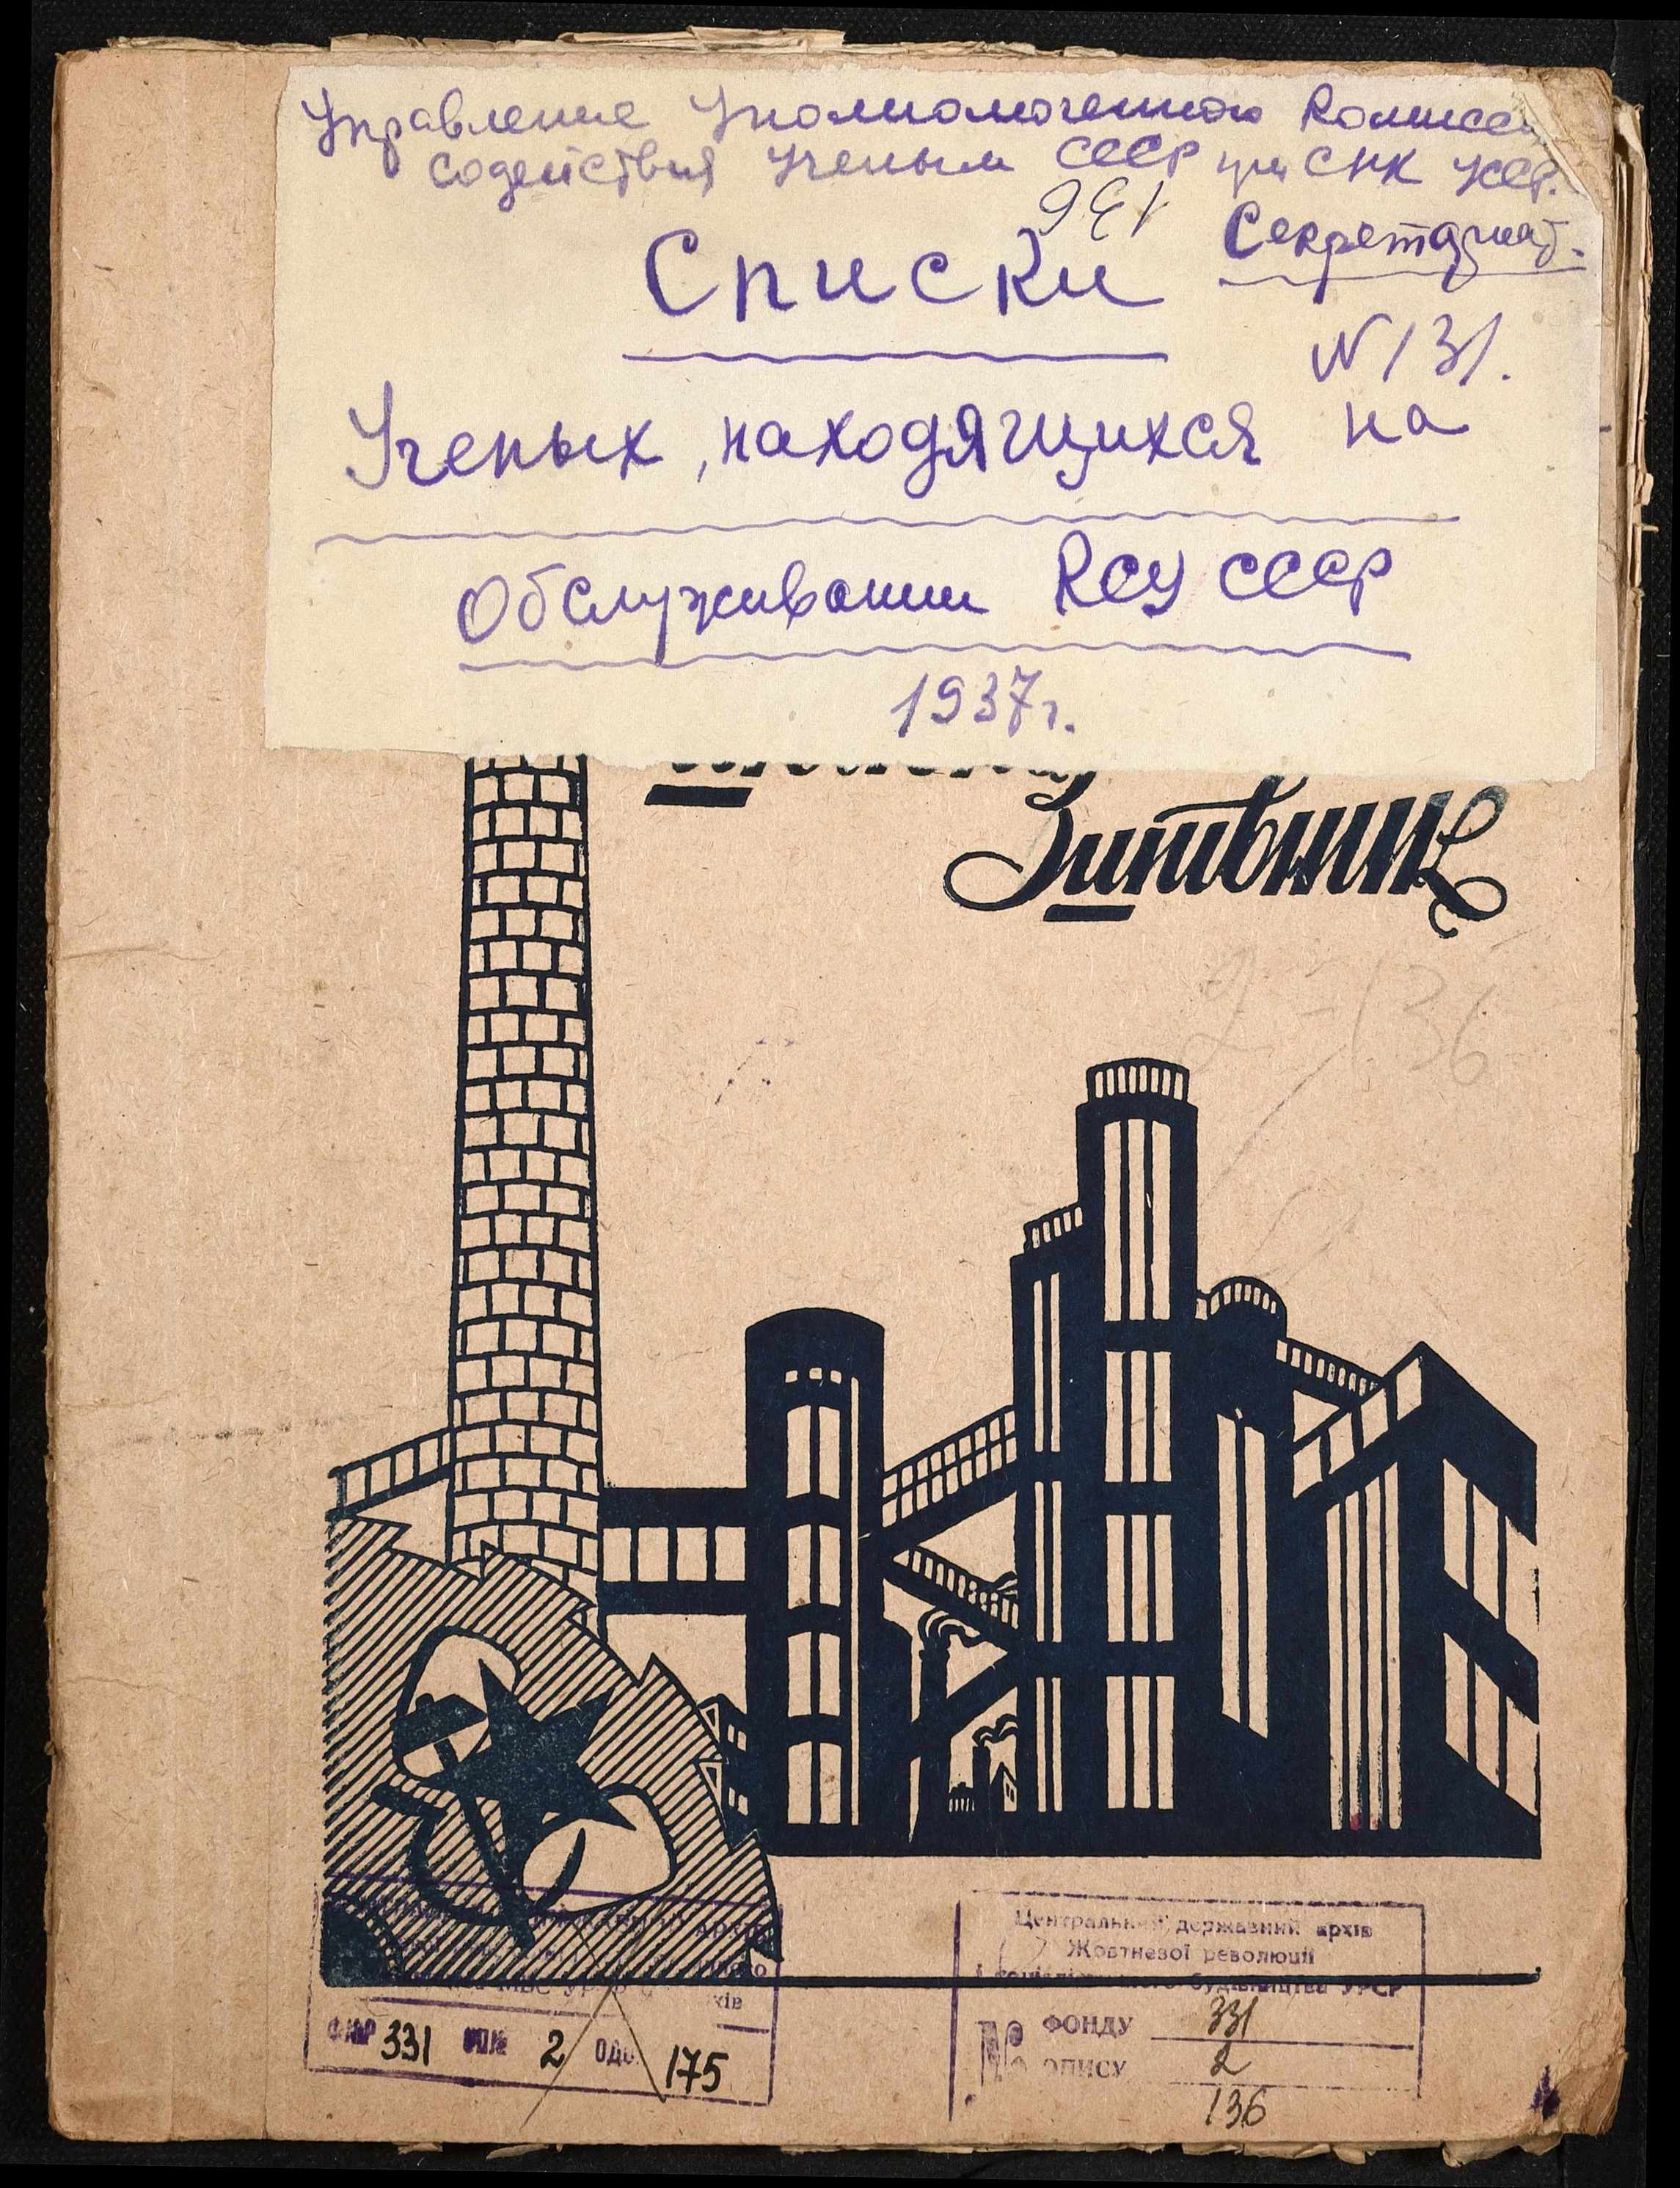 Управление Уполномоченного Комиссии
содействия Ученым СССР при СНК УССР.
136
Секретариат.
Списки
N 131.
Ученых, находящихся на
Обслуживании КСУ СССР
1937г.
Зшивник
2-136
Центральний державний архів
Жовтневої революції
будівництва УРСР
№ ФОНДУ 331
ОПИСУ 2
136
МВС УРСР
331 2 175